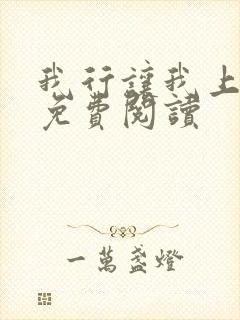 我行讓我上
免費閱讀
一萬盞燈